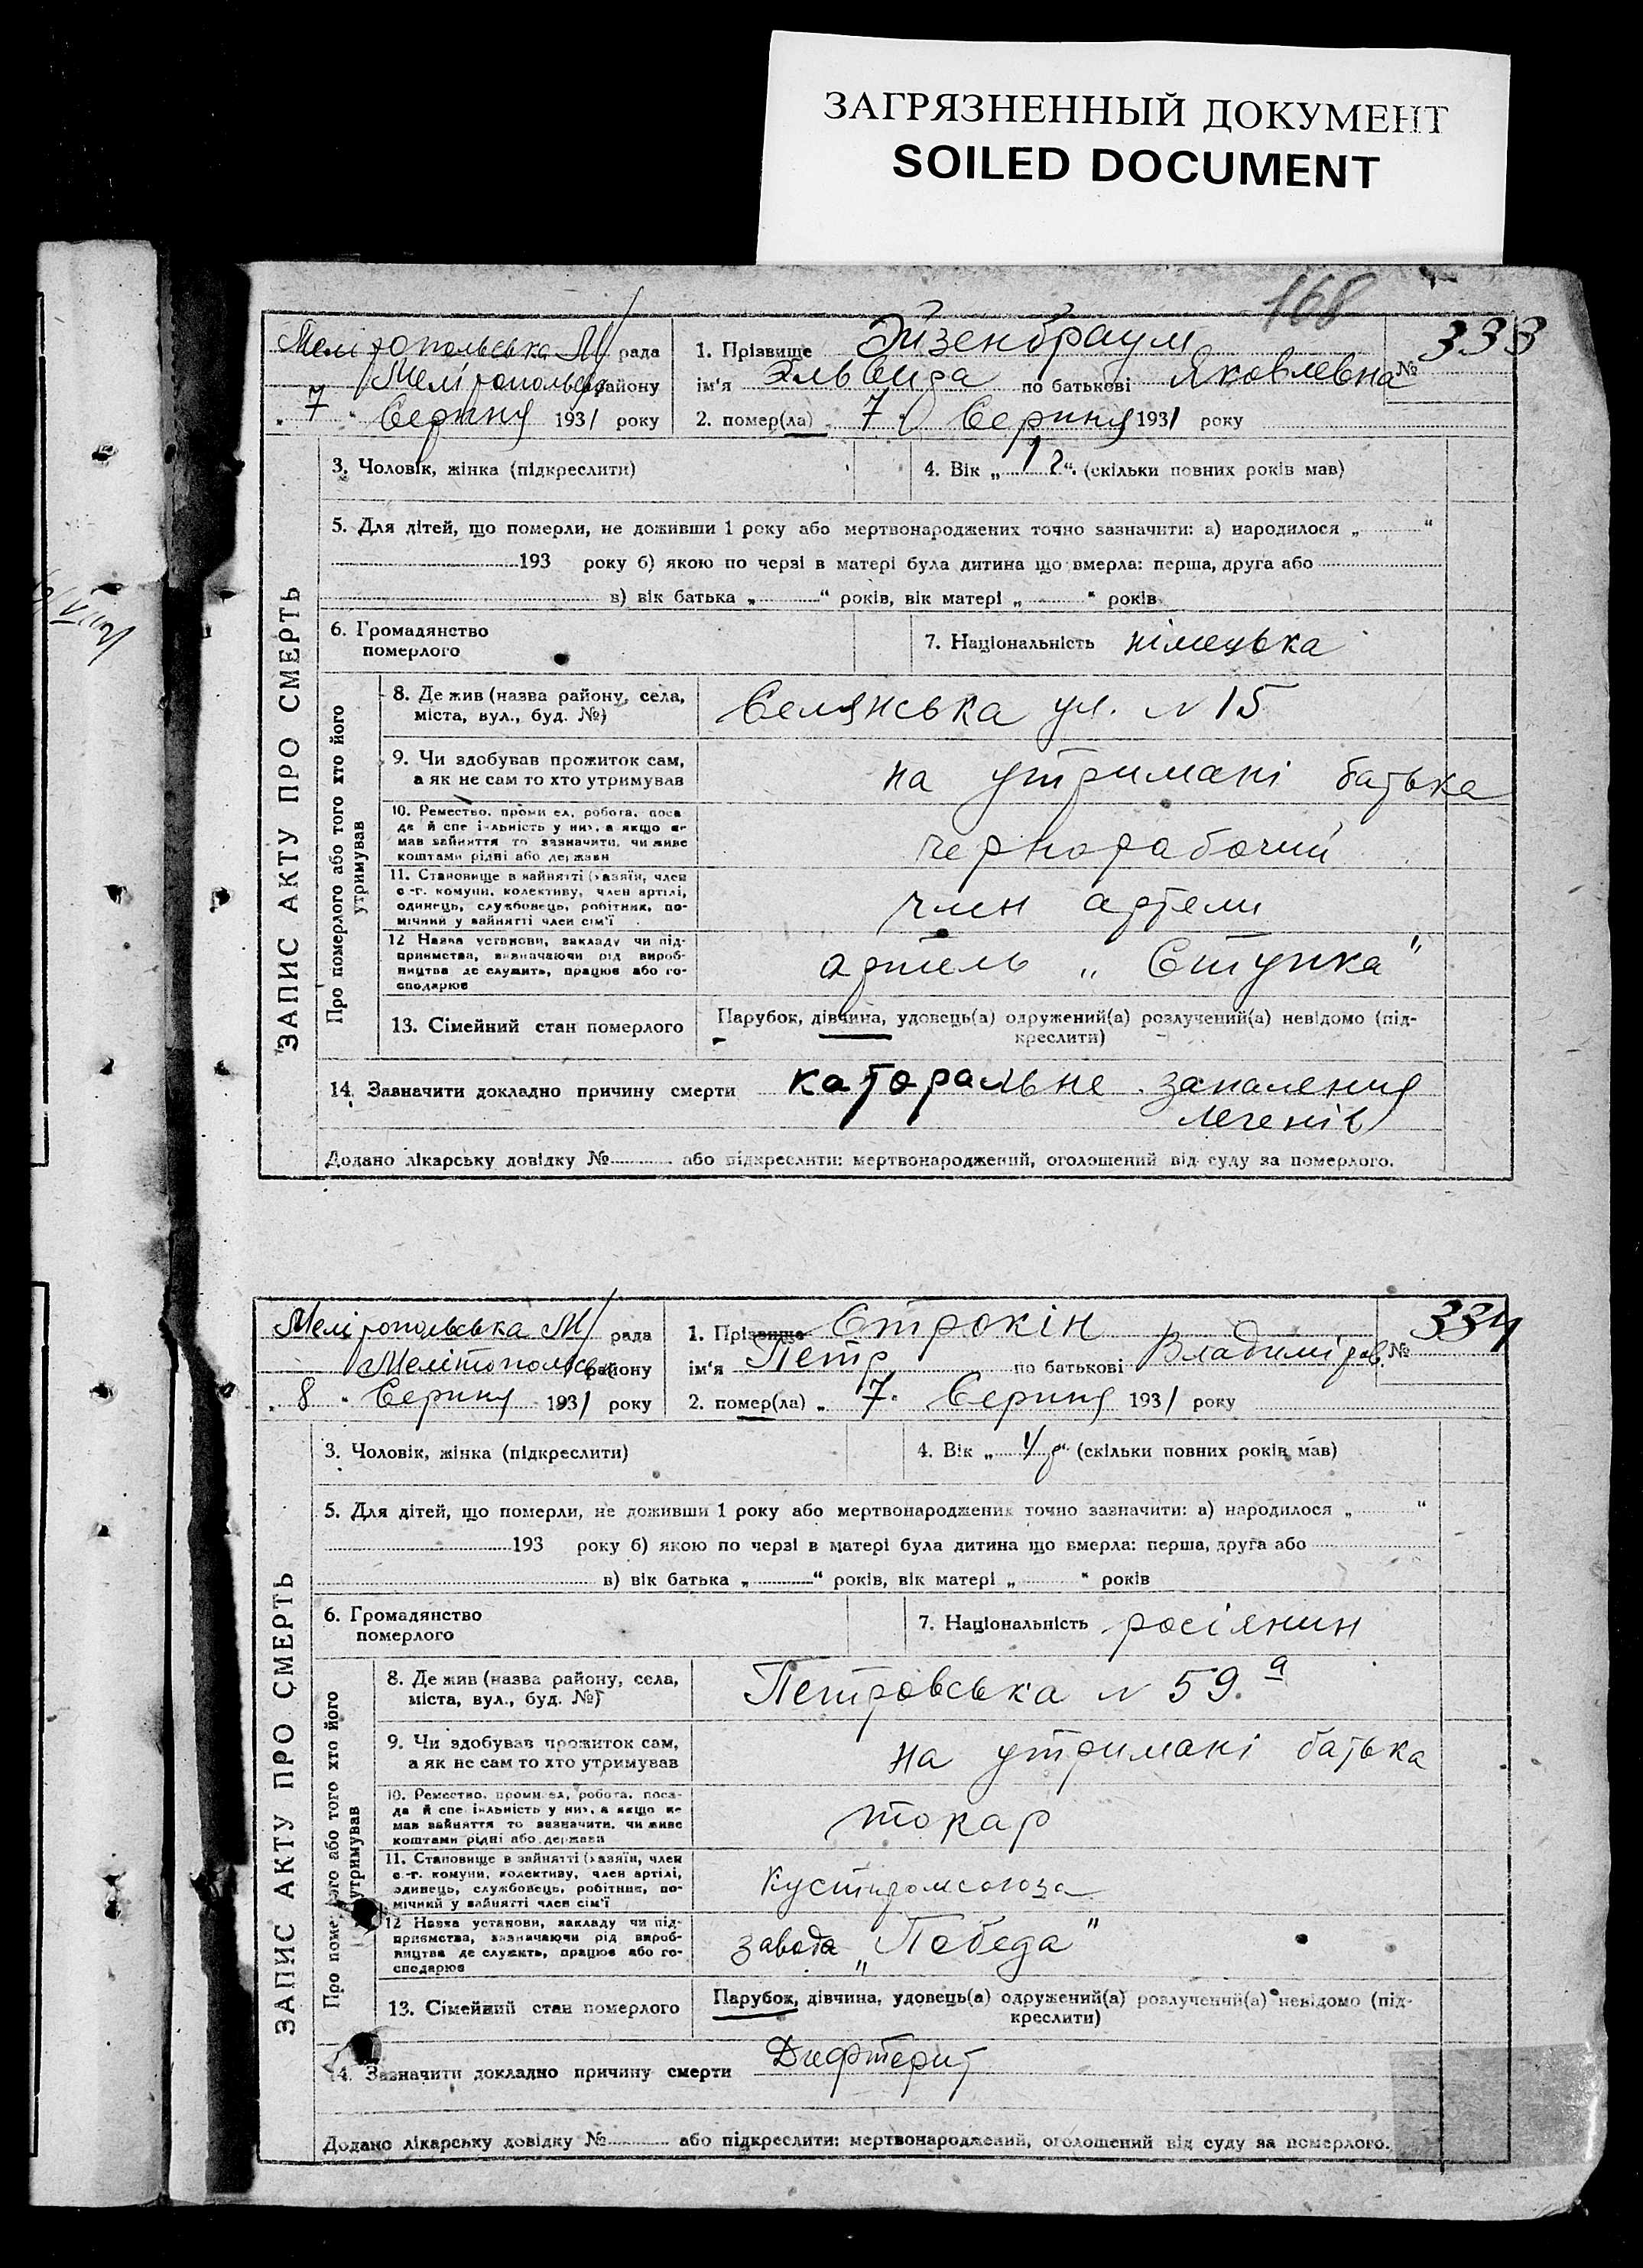 ЗАГРЯЗНЕННЫЙ ДОКУМЕНТ
SOILED DOCUMENT
168
Мелітопольська М/ рада
Мелітопольськ району
"7" Серпня 1931 року
1. Прізвище Эйзенбраум
№ 333
ім'я Эльвира по батькові Яковлевна
2. помер(ла) 7 Серпня 1931 року
ЗАПИС АКТУ ПРО СМЕРТЬ
3. Чоловік, жінка (підкреслити)
4. Вік „ 1 г“ (скільки повних років мав)
5. Для дітей, що померли, не доживши 1 року або мертвонароджених точно зазначити: а) народилося „ “
193 року б) якою по черзі в матері була дитина що вмерла: перша, друга або
в) вік батька „ “ років, вік матері „ “ років
6. Громадянство померлого
7. Національність німецька
Про померлого або того хто його утримував
8. Де жив (назва району, села,
міста, вул., буд. №)
Селянська ул. N 15
9. Чи здобував прожиток сам,
а як не сам то хто утримував
на утримані батька
10. Ремество, промисел, робота, поса-
да й спеціяльність у них, а якщо не
мав зайняття то зазначити, чи живе
коштами рідні або держави
чернорабочий
11. Становище в зайнятті (хазяїн, член
с.-г. комуни, колективу, член артілі,
одинець, службовець, робітник, по-
мічний у зайнятті член сім'ї
член артели
12 Назва установи, закладу чи під-
приємства, визначаючи рід вироб-
ництва де служить, працює або го-
сподарює
артель „Ступка"
13. Сімейний стан померлого
Парубок, дівчина, удовець(а) одружений(а) розлучений(а) невідомо (під-
креслити)
14. Зазначити докладно причину смерти каторальне запалення
легенів
Додано лікарську довідку № або підкреслити: мертвонароджений, оголошений від суду за померлого.
Мелітопольська М/ рада
Мелітопольськ району
"8" Серпня 1931 року
1. Прізвище Строкін
№ 334
ім'я Петр по батькові Владиміров.
2. помер(ла) „ 7 Серпня 1931 року
ЗАПИС АКТУ ПРО СМЕРТЬ
3. Чоловік, жінка (підкреслити)
4. Вік „ “ (скільки повних років мав)
5. Для дітей, що померли, не доживши 1 року або мертвонароджених точно зазначити: а) народилося „ “
193 року б) якою по черзі в матері була дитина що вмерла: перша, друга або
в) вік батька „ “ років, вік матері „ “ років
6. Громадянство померлого
7. Національність росіянин
Про померлого або того хто його утримував
8. Де жив (назва району, села,
міста, вул., буд. №)
Петровська N 59.а
9. Чи здобував прожиток сам,
а як не сам то хто утримував
на утримані батька
10. Ремество, промисел, робота, поса-
да й спеціяльність у них, а якщо не
мав зайняття то зазначити, чи живе
коштами рідні або держави
токар
11. Становище в зайнятті (хазяїн, член
с.-г. комуни, колективу, член артілі,
одинець, службовець, робітник, по-
мічний у зайнятті член сім'ї
Кустпромсоюза
12 Назва установи, закладу чи під-
приємства, визначаючи рід вироб-
ництва де служить, працює або го-
сподарює
завода „Победа"
13. Сімейний стан померлого
Парубок, дівчина, удовець(а) одружений(а) розлучений(а) невідомо (під-
креслити)
14. Зазначити докладно причину смерти Дифтерит
Додано лікарську довідку № або підкреслити: мертвонароджений, оголошений від суду за померлого.